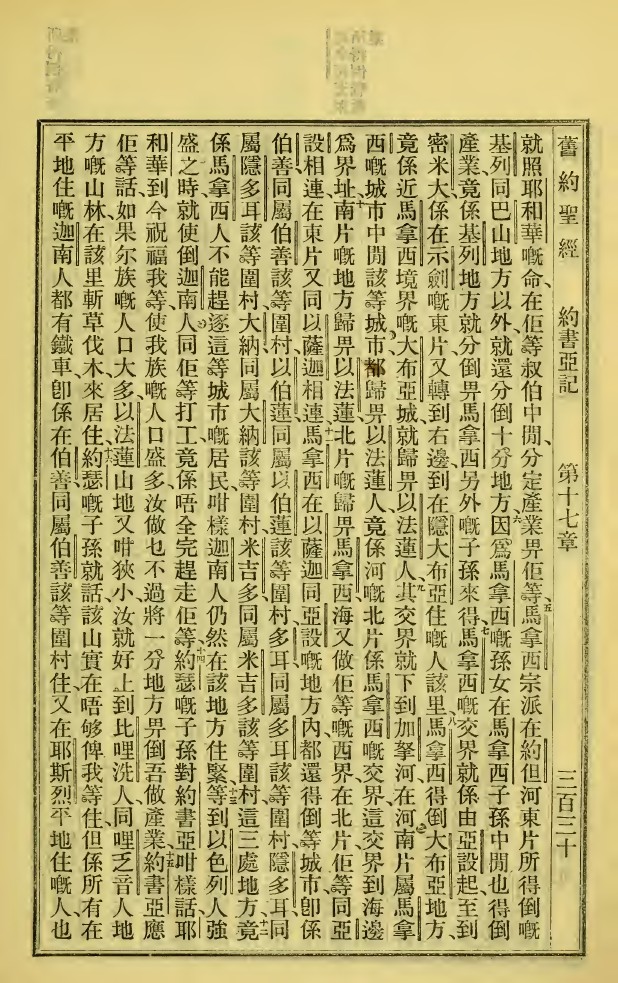 舊約聖經 約書亞記 第十七章 三百三十
就照耶和華嘅命、在佢等叔伯中間、分定產業畀佢等、五馬拿西宗派在約但河東片所得倒嘅
基列同巴山地方以外、就還分倒十分地方、六因爲馬拿西嘅孫女在馬拿西子孫中間也得倒
產業、竟係基列地方就分倒畀馬拿西另外嘅子孫來得、七馬拿西嘅交界就係由亞設起、至到
密米大係在示劍嘅東片、又轉到右邊、到在隱大布亞住嘅人該里、八馬拿西得倒大布亞地方、
竟係近馬拿西境界嘅大布亞城、就歸畀以法蓮人、九其交界就下到加拏河、在河南片屬馬拿
西嘅城市中間、該等城市都歸畀以法蓮人、竟係河嘅北片係馬拿西嘅交界、這交界到海邊
爲界址、十南片嘅地方歸畀以法蓮、北片嘅歸畀馬拿西、海又做佢等嘅西界、在北片佢等同亞
設相連、在東片又同以薩迦相連、十一馬拿西在以薩迦同亞設嘅地方內、都還得倒等城市、卽係
伯善同屬伯善該等圍村、以伯蓮同屬以伯蓮該等圍村、多耳同屬多耳該等圍村、隱多耳同
屬隱多耳該等圍村、大納同屬大納該等圍村、米吉多同屬米吉多該等圍村、這三處地方、十二竟
係馬拿西人不能趕逐這等城市嘅居民、咁樣迦南人仍然在該地方住緊、十三等到以色列人強
盛之時、就使倒迦南人同佢等打工、竟係唔全完趕走佢等、十四約瑟嘅子孫對約書亞咁樣話、耶
和華到今祝福我等、使我族嘅人口盛多、汝做乜不過將一分地方畀倒吾做產業、十五約書亞應
佢等話、如果尔族嘅人口大多、以法蓮山地又咁狹小、汝就好上到比哩洗人同哩乏音人地
方嘅山林、在該里斬草伐木來居住、十六約瑟嘅子孫就話、該山實在唔够俾我等住、但係所有在
平地住嘅迦南人、都有鐵車、卽係在伯善同屬伯善該等圍村住、又在耶斯烈平地住嘅人也